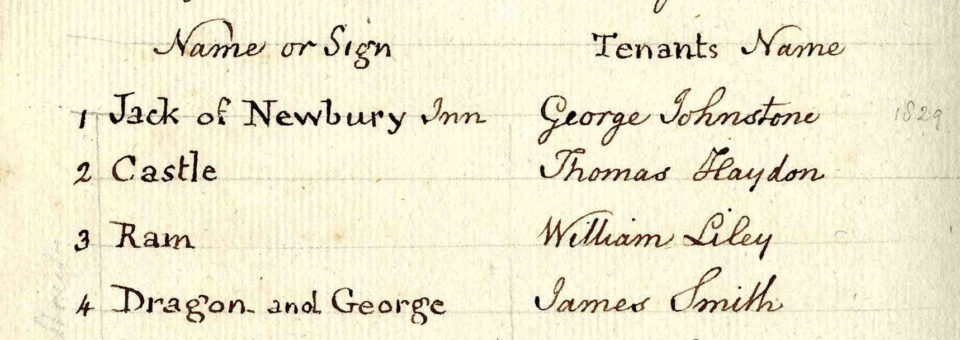 Name or Sign Tenants Name
1 Jack of Newbury Inn George Johnstone 1829
2 Castle Thomas Haydon
3 Ram William Liley
4 Dragon and George James Smith